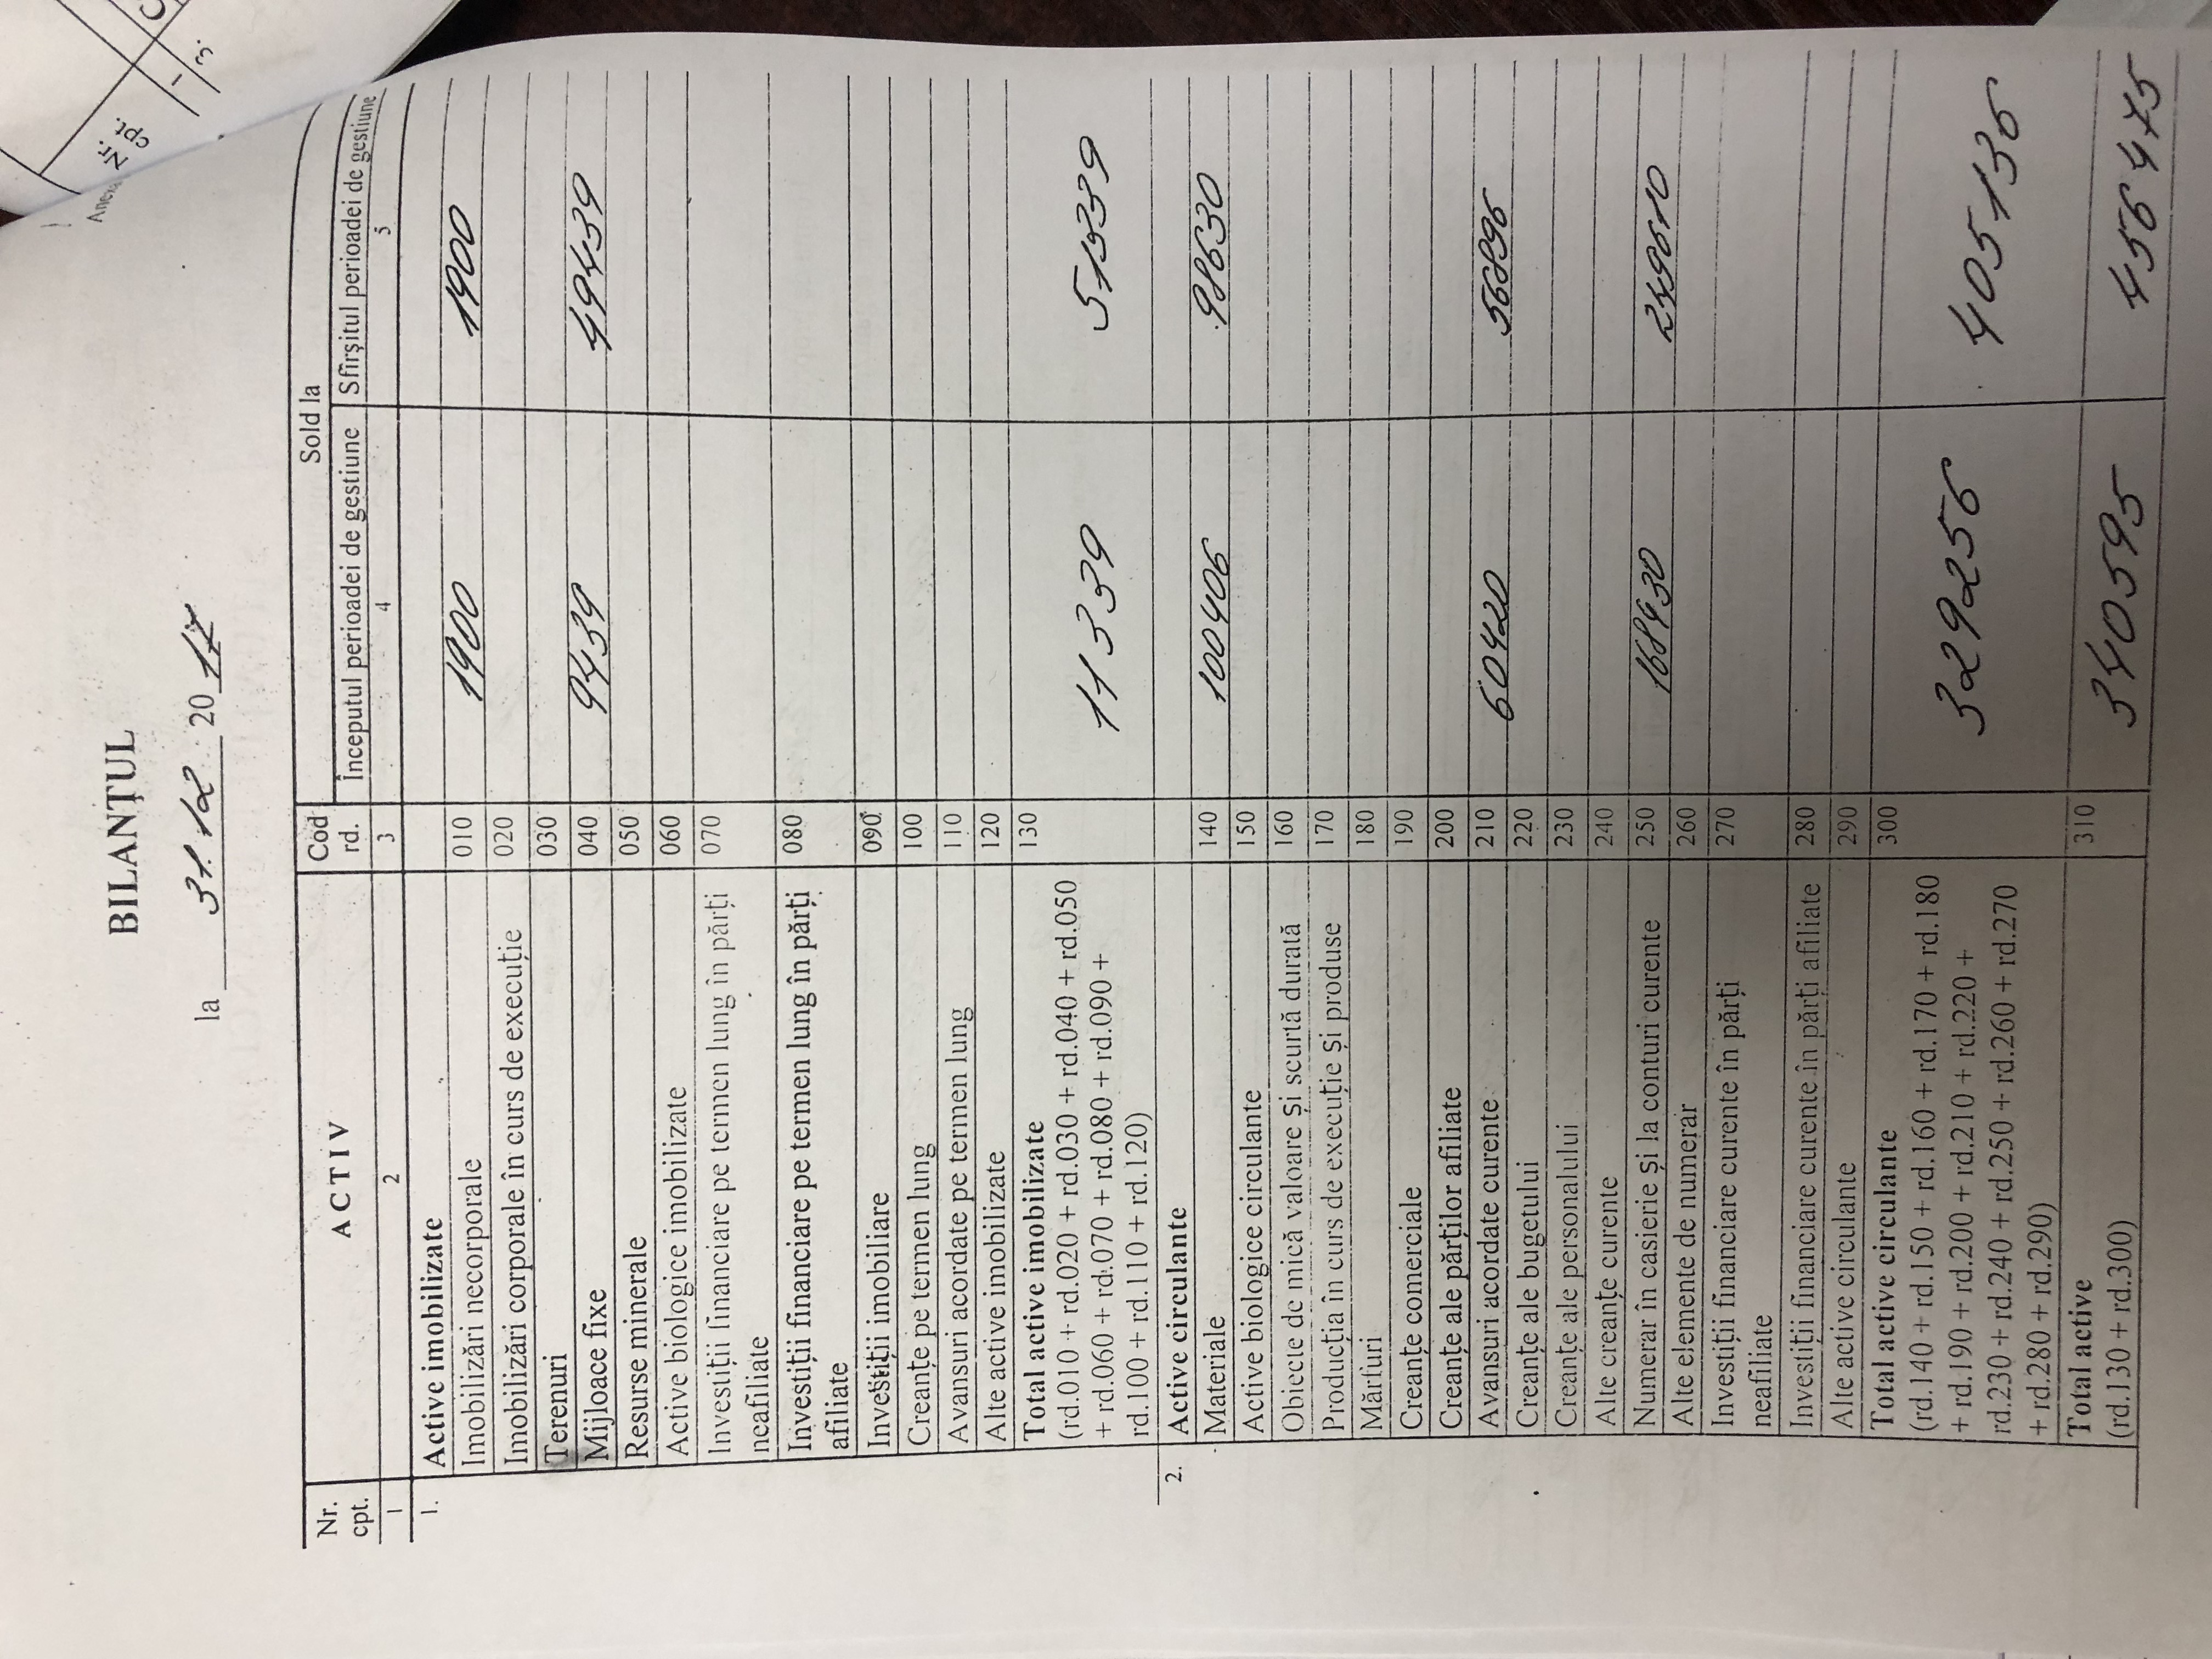 Nr.
cpt.
BILANȚUL
la 31.12 2017
Nr. cpt. ACTIV Cod rd. Sold la
Începutul perioadei de gestiune Sfîrșitul perioadei de gestiune
1 2 3 4 5
1. Active imobilizate
Imobilizări necorporale 010 1900 1900
Imobilizări corporale în curs de execuție 020
Terenuri 030
Mijloace fixe 040 9439 49439
Resurse minerale 050
Active biologice imobilizate 060
Investiții financiare pe termen lung în părți 070
neafiliate
Investiții financiare pe termen lung în părți 080
afiliate
Investiții imobiliare 090
Creanțe pe termen lung 100
Avansuri acordate pe termen lung 110
Alte active imobilizate 120
Total active imobilizate 130
(rd.010 + rd.020 + rd.030 + rd.040 + rd.050
+ rd.060 + rd.070 + rd.080 + rd.090 + 11339 51339
rd.100 + rd.110 + rd.120)
2. Active circulante
Materiale 140 100406 98630
Active biologice circulante 150
Obiecte de mică valoare și scurtă durată 160
Producția în curs de execuție și produse 170
Mărfuri 180
Creanțe comerciale 190
Creanțe ale părților afiliate 200
Avansuri acordate curente 210 60420 56896
Creanțe ale bugetului 220
Creanțe ale personalului 230
Alte creanțe curente 240
Numerar în casierie și la conturi curente 250 168430 249610
Alte elemente de numerar 260
Investiții financiare curente în părți 270
neafiliate
Investiții financiare curente în părți afiliate 280
Alte active circulante 290
Total active circulante 300
(rd.140 + rd.150 + rd.160 + rd.170 + rd.180
+ rd.190 + rd.200 + rd.210 + rd.220 + 329256 405136
rd.230 + rd.240 + rd.250 + rd.260 + rd.270
+ rd.280 + rd.290)
Total active 310
(rd.130 + rd.300) 340595 456475